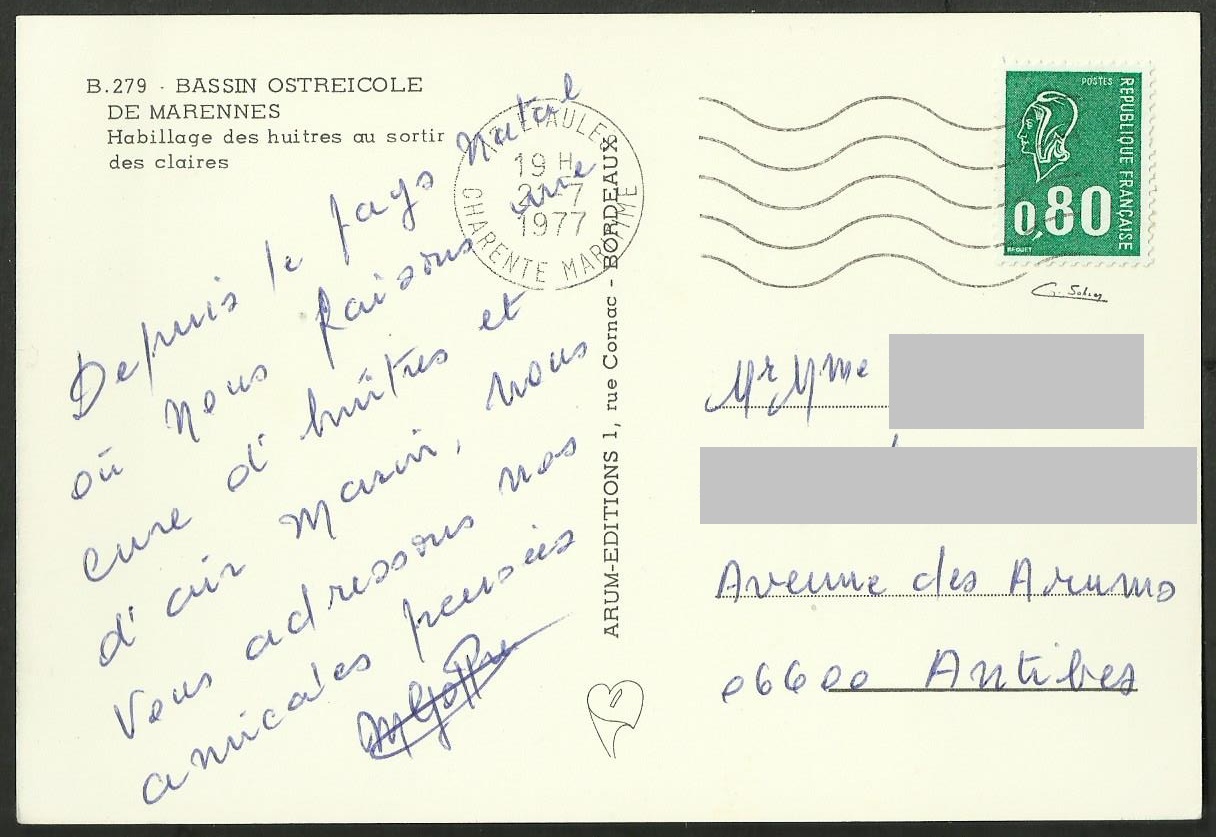 B.279 - BASSIN OSTREICOLE
DE MARENNES
Habillage des huitres au sortir
des claires
Depuis le pays natal
où nous faisons une
cure d'huîtres et
d'air marin, nous
vous adressons nos
amicales pensées
19 H
7
1977
CHARENTE MARITIME
ARUM-EDITIONS 1, rue Cornac - BORDEAUX
POSTES
REPUBLIQUE FRANÇAISE
0,80
BEQUET
Mr Mme
Avenue des Arums
06600 Antibes